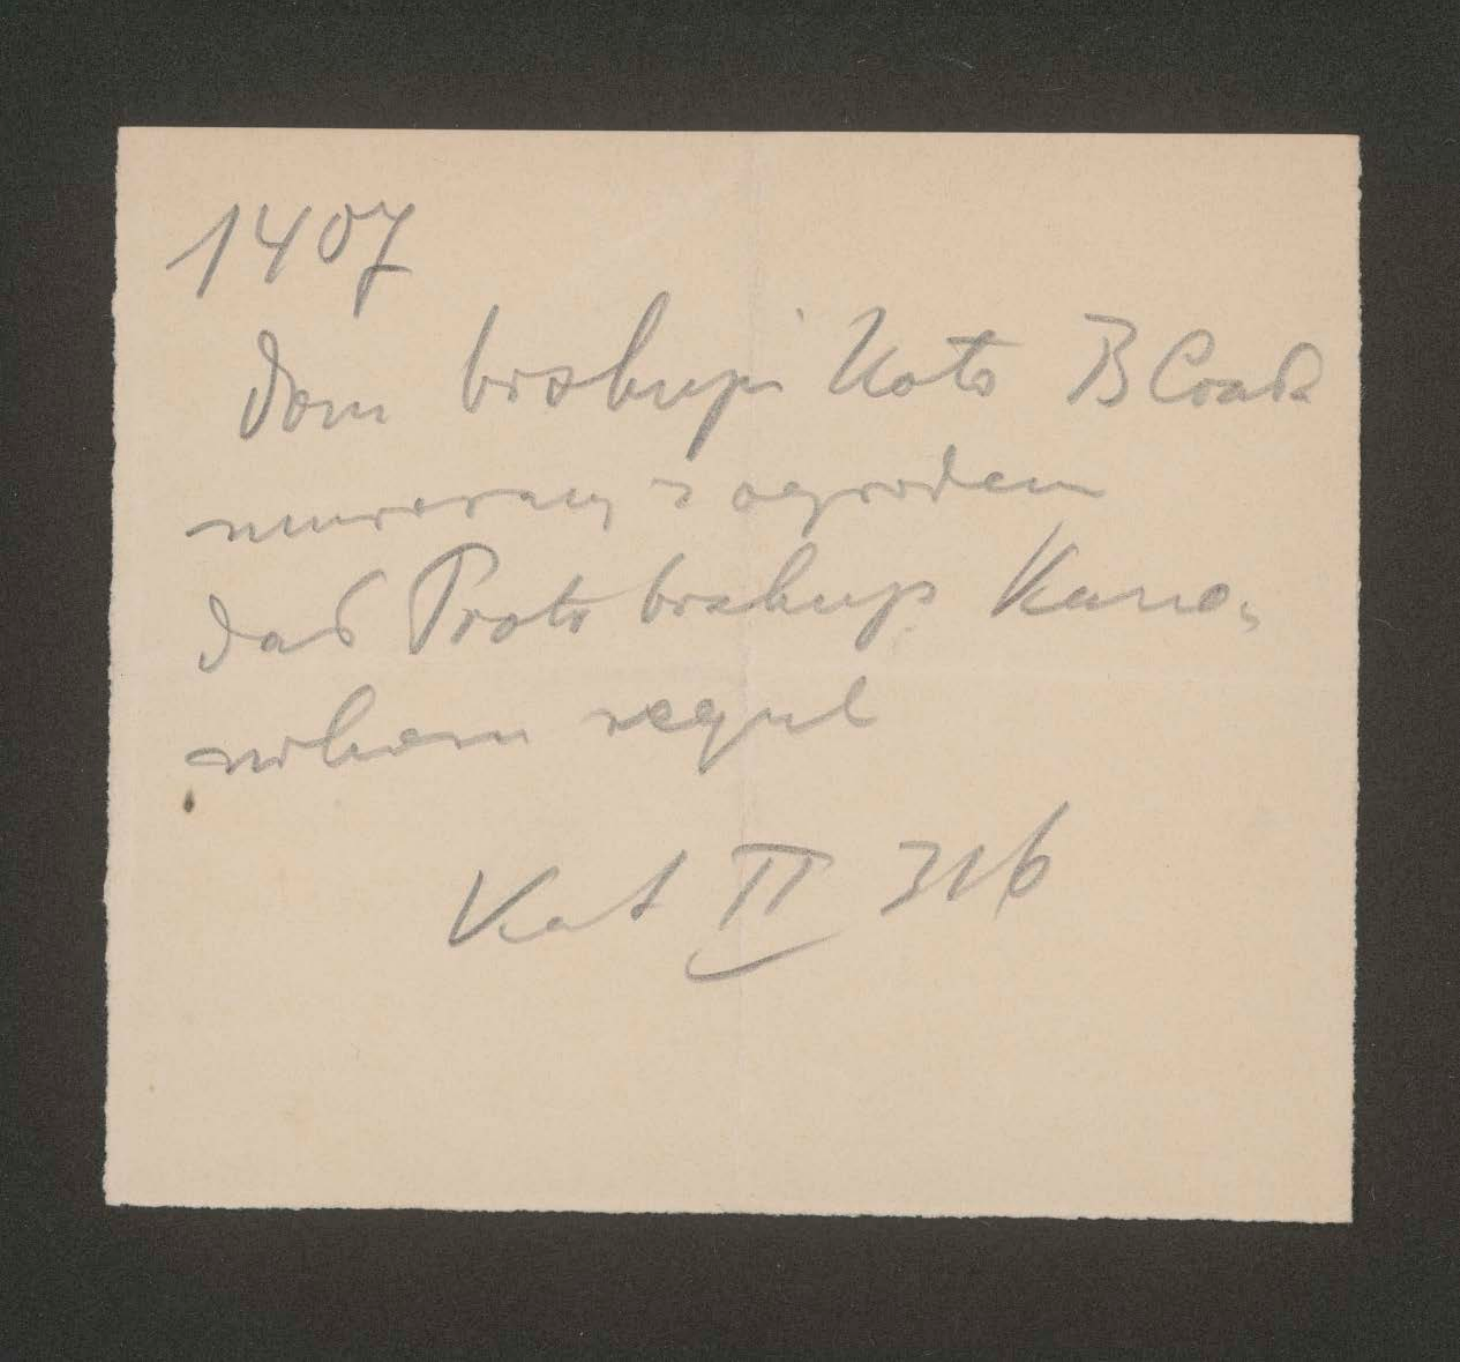 1407
Dom biskupi koło B Ciała
murowany z ogrodem
dał Piotr biskup Kano-
nikom regul
Kat II 316